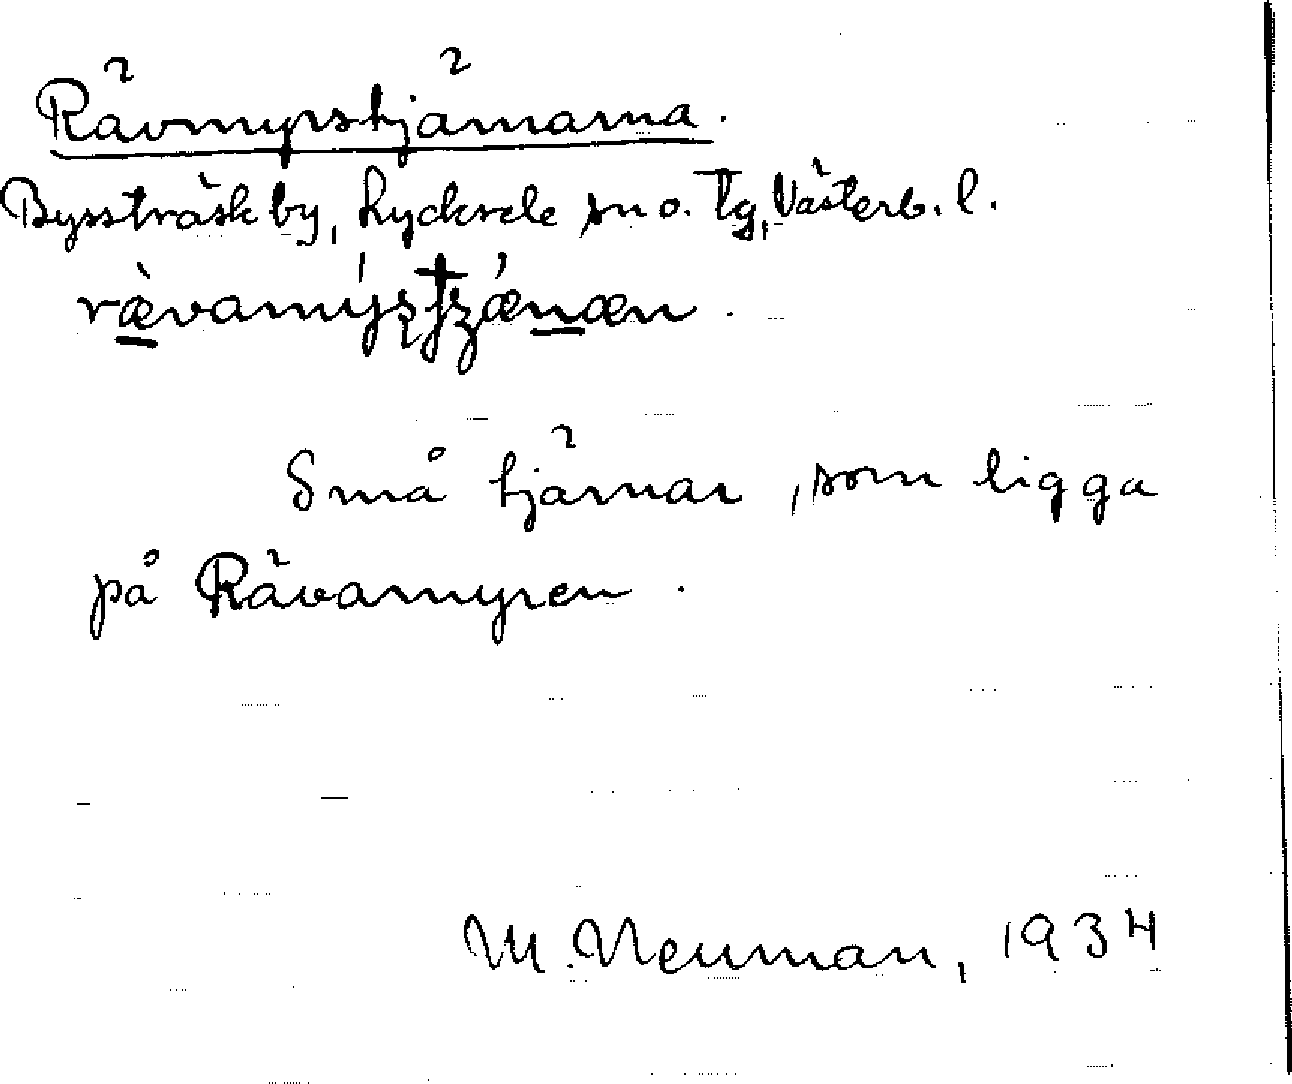 Rävmyrstjärnarna.
Bysstråsk by, Lycksele sn o. Tg, Västerb. l.
Små tjärnar, som ligga
på Rävamyren.
M. Neuman, 1934